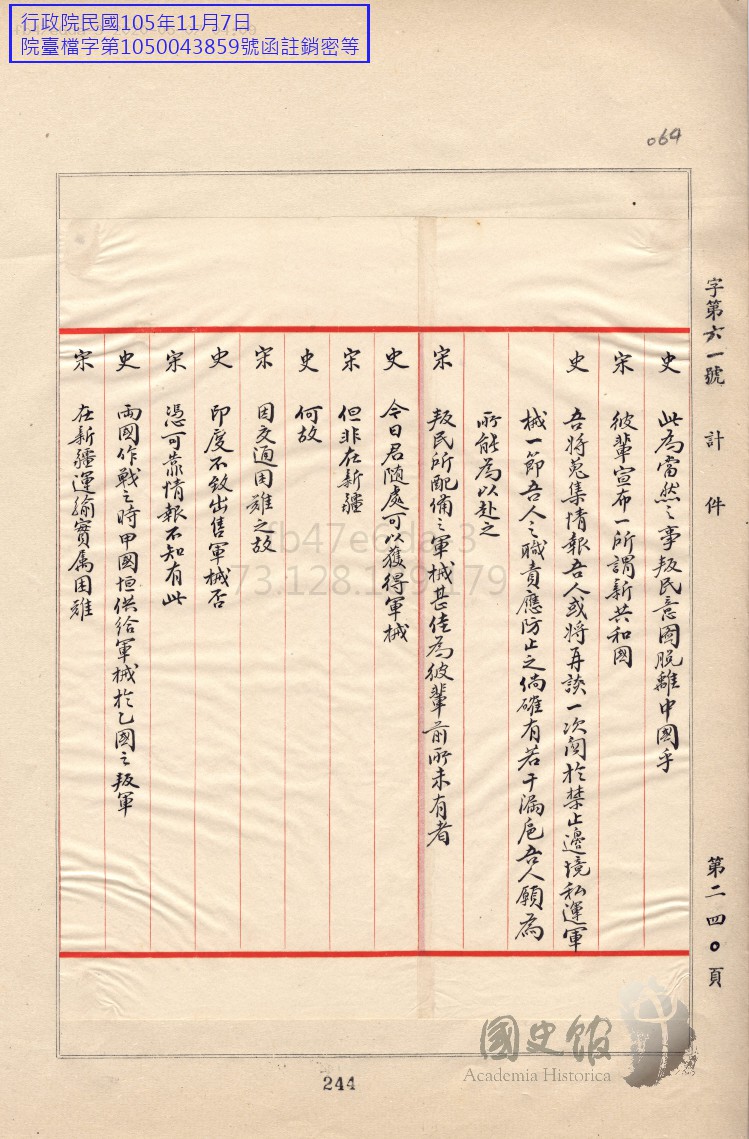 行政院民國105年11月7日
院臺檔字第1050043859號函註銷密等
064
字第六一號 計 件
第二四〇頁
史 此為當然之事叛民意圖脫離中國乎
宋 彼輩宣布一所謂新共和國
史 吾將蒐集情報吾人或將再談一次關於禁止邊境私運軍
械一節吾人之職責應防止之倘確有若干漏巵吾人願為
所能為以赴之
宋 叛民所配備之軍械甚佳為彼輩前所未有者
史 今日君随處可以獲得軍械
宋 但非在新疆
史 何故
宋 因交通困难之故
史 印度不致出售軍械否
宋 憑可靠情報不知有此
史 兩國作戰之時甲國恒供給軍械於乙國之叛軍
宋 在新疆運輸實属困难
國史館
Academia Historica
244